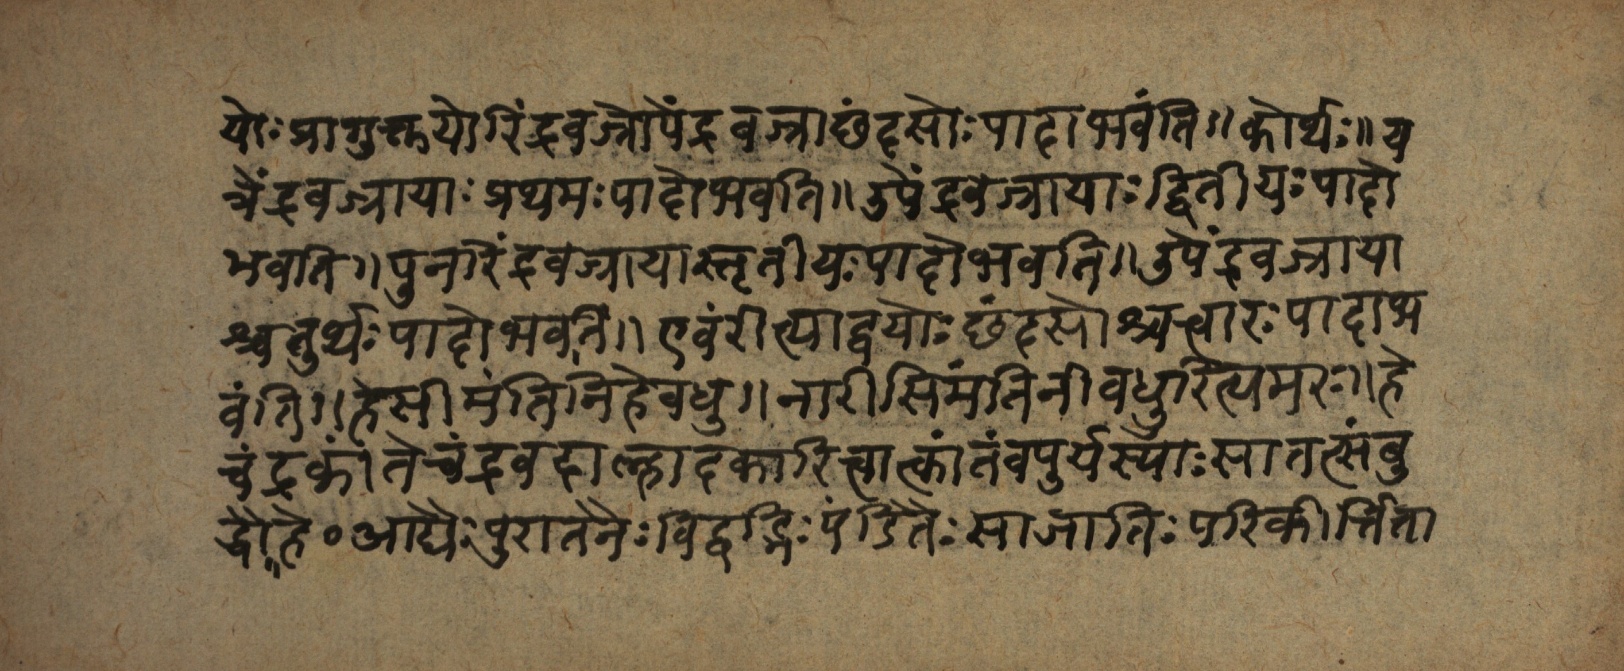 योः प्रागुक्तयोरिंद्रवज्रोपेंद्रवज्राछंदसोः पादा भवंति ॥ कोर्थः ॥ य
त्रेंद्रवज्रायाः प्रथमः पादो भवति ॥ उपेंद्रवज्रायाः द्वितीयः पादो
भवति ॥ पुनरिंद्रवज्रायास्तृतीयः पादो भवति ॥ उपेंद्रवज्राया
श्चतुर्थः पादो भवति ॥ एवं रीत्या द्वयोः छंदसोश्चत्वारः पादा भ
वंति ॥ हे सीमंतिनि हे वधु ॥ नारी सिमंतिनी वधुरित्यमरः ॥ हे
चंद्रकांते चंद्रवदाल्हादकारित्वात्कांतं वपुर्यस्याः सा तत्संबु
द्धौ हे ॰ आद्यैः पुरातनैः विद्वद्भिः पंडितैः सा जातिः परिकीर्त्तिता